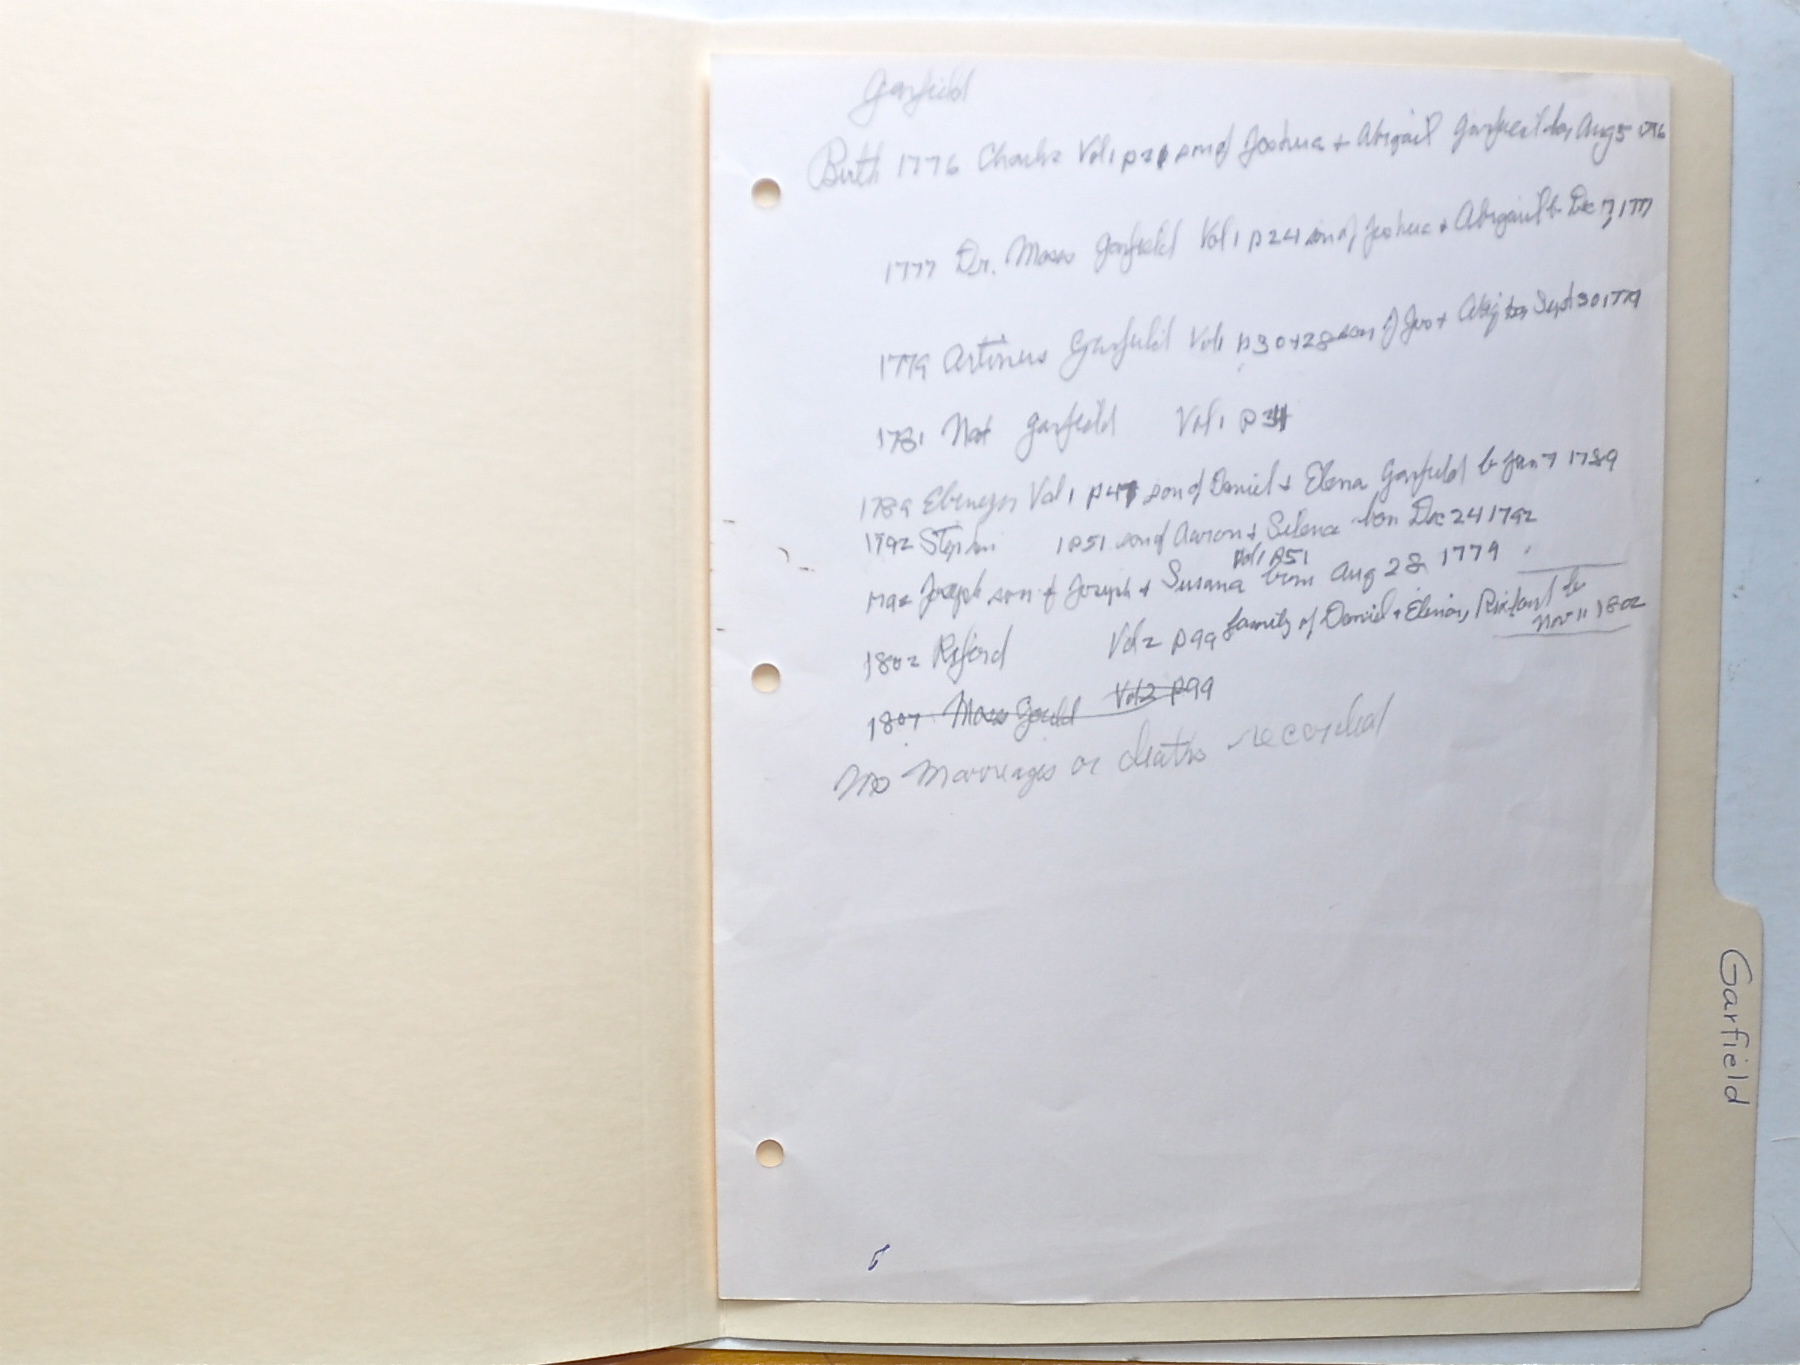 Garfield
Birth 1776 Charls Vol 1 p 21 son of Joshua + Abigail Garfield b Aug 5 1776
1777 Dr. Moses Garfield Vol 1 p 24 son of Joshua + Abigail b Dec 7, 1777
1779 Artimus Garfield Vol 1 p 30 + 28 son of Jos + Abig Sept 30 1779
1781 Nat Garfield Vol 1 p 34
1789 Ebenezer Vol 1 p 47 son of Daniel + Elena Garfield b Jan 7 1789
1792 1 p 51 son of Aaron + Silence born Dec 24 1792
Vol 1 p 51
1792 Joseph son of Joseph + Susana born Aug 28 1779
1802 Rxford Vol 2 p 99 family of Daniel + Elenor, b
Nov 11 1802
1807 Moses Gould Vol 2 p 99
No Marriages or deaths recorded
Garfield